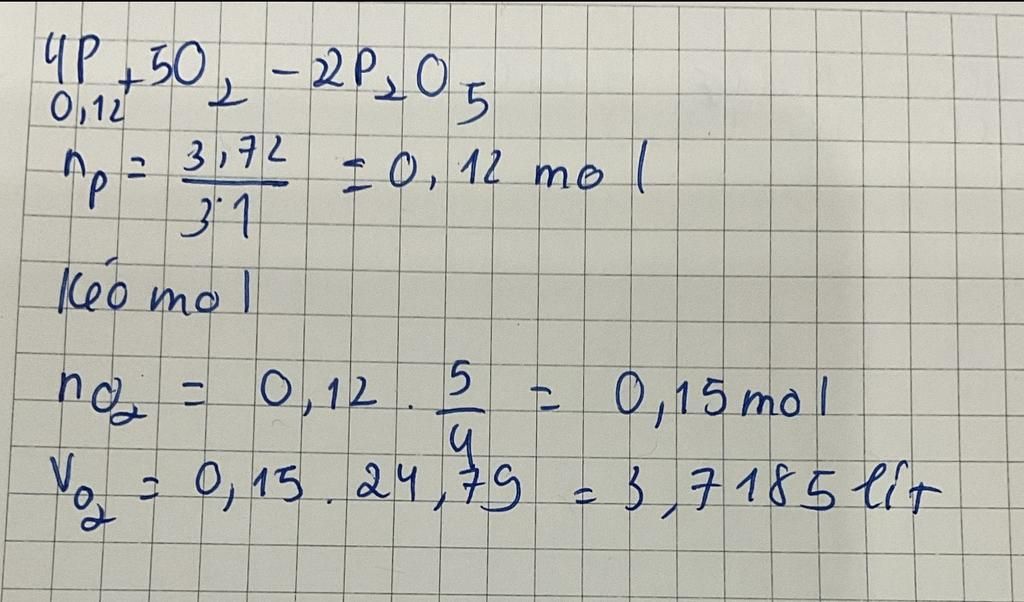 4P + 5O₂ - 2P₂O₅
0,12
nₚ = 3,72/31 = 0,12 mol
Kéo mol
nO₂ = 0,12 . 5/4 = 0,15 mol
VO₂ = 0,15 . 24,79 = 3,7185 lít